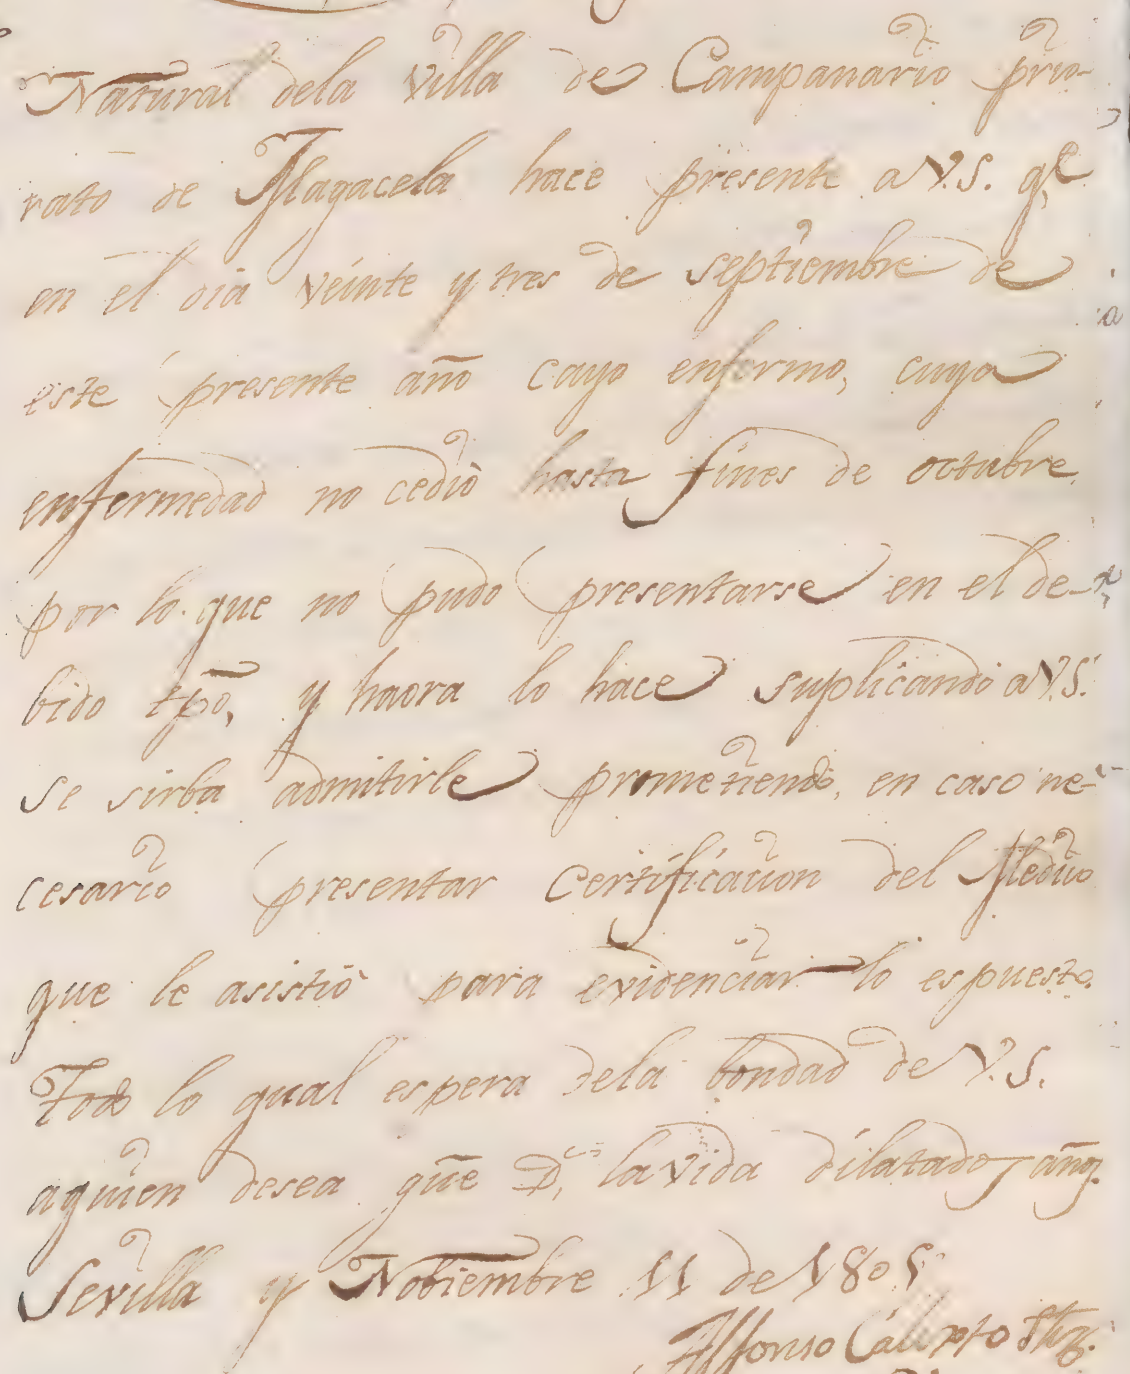 Natural dela villa de Campanario prio-
rato de Magacela hace presente a V.S. qe
en el dia veinte y tres de septiembre de
este presente año cayo enfermo, cuya
enfermedad no cedio hasta fines de octubre
por lo que no pudo presentarse en el de-
bido tpō, y haora lo hace suplicando a V.S.
se sirba admitirle prometiendo, en caso ne-
cesario presentar certificacion del Medico
que le asistio para evidenciar lo espuesto.
Todo lo qual espera dela bondad de V.S.
aquien desea gūe D. la vida dilatados añs.
Sevilla y Nobiembre 11 de 1805
Alfonso Calixto